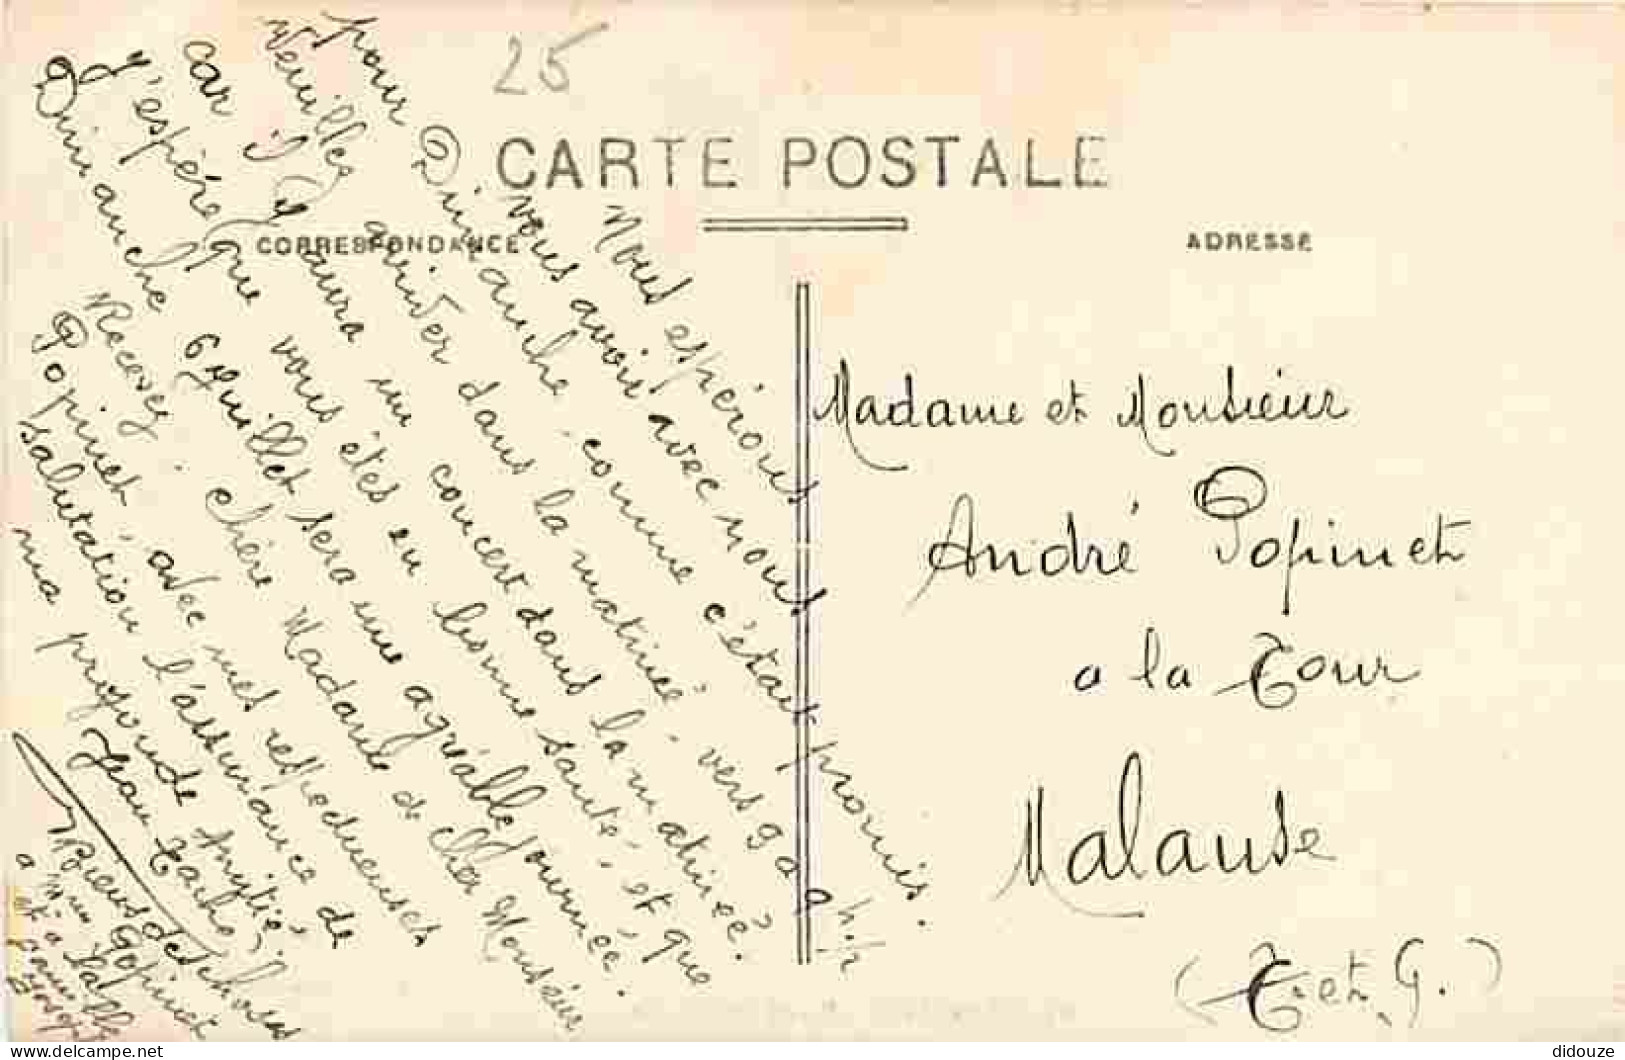 25
CARTE POSTALE
CORRESPONDANCE
ADRESSE
Nous espérons
vous avoir avec nous
pour Dimanche, comme c'était promis.
Veuillez arriver dans la matinée vers 9 h
car il y aura un concert dans la matinée.
J'espère que vous êtes en bonne santé, et que
Dimanche 6 Juillet sera une agréable journée.
Recevez, chère Madame et cher Monsieur
Popinet, avec mes respectueuses
salutation l'assurance de
ma profonde Amitié,
Jean
Bien des choses
a Mme Popinet
et a
Madame et Monsieur
André Popinet
a la Tour
Malause
(T. et G.)
didouze
www.delcampe.net